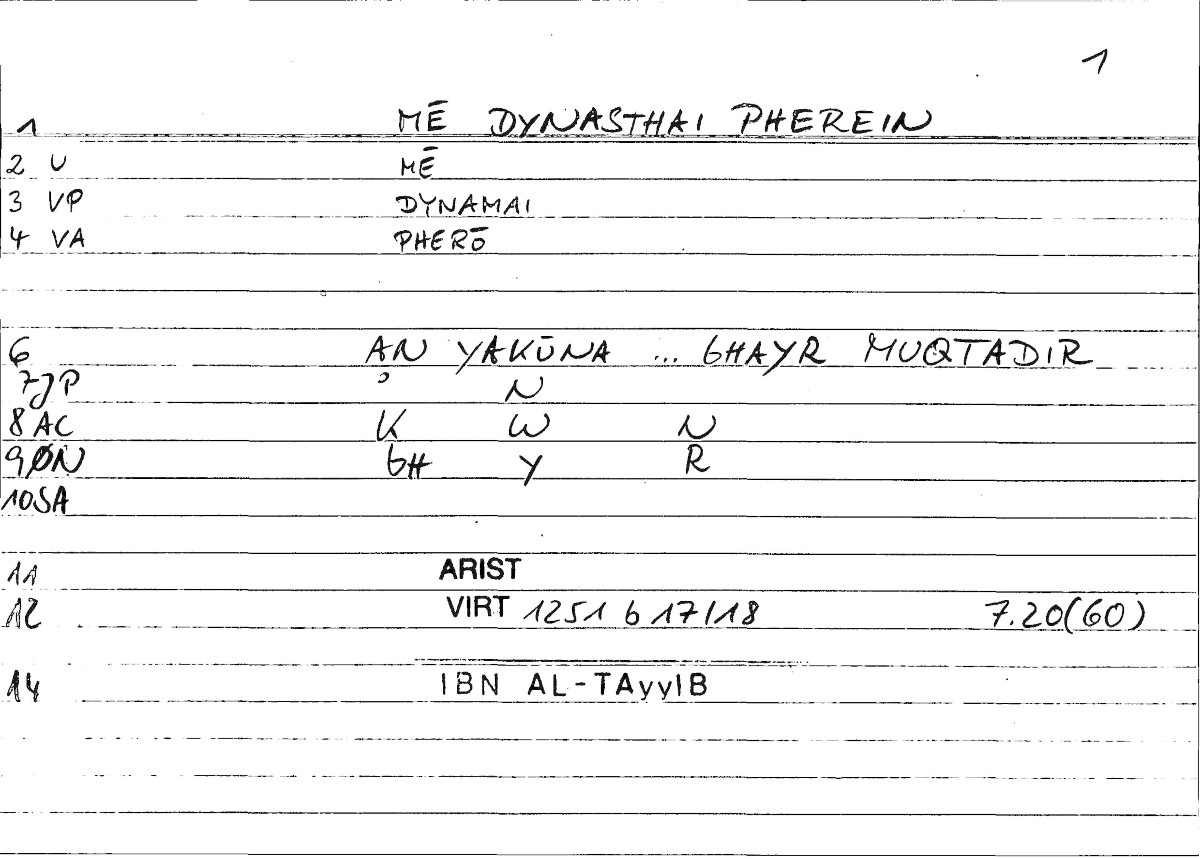 1
1 MĒ DYNASTHAI PHEREIN
2 U MĒ
3 VP DYNAMAI
4 VA PHERŌ
6 AN YAKŪNA ... GHAYR MUQTADIR
7JP ʾ N
8 AC K W N
9ØN GH Y R
10SA
11 ARIST
12 VIRT 1251 b 17/18 7.20(60)
14 IBN AL-TAyyIB